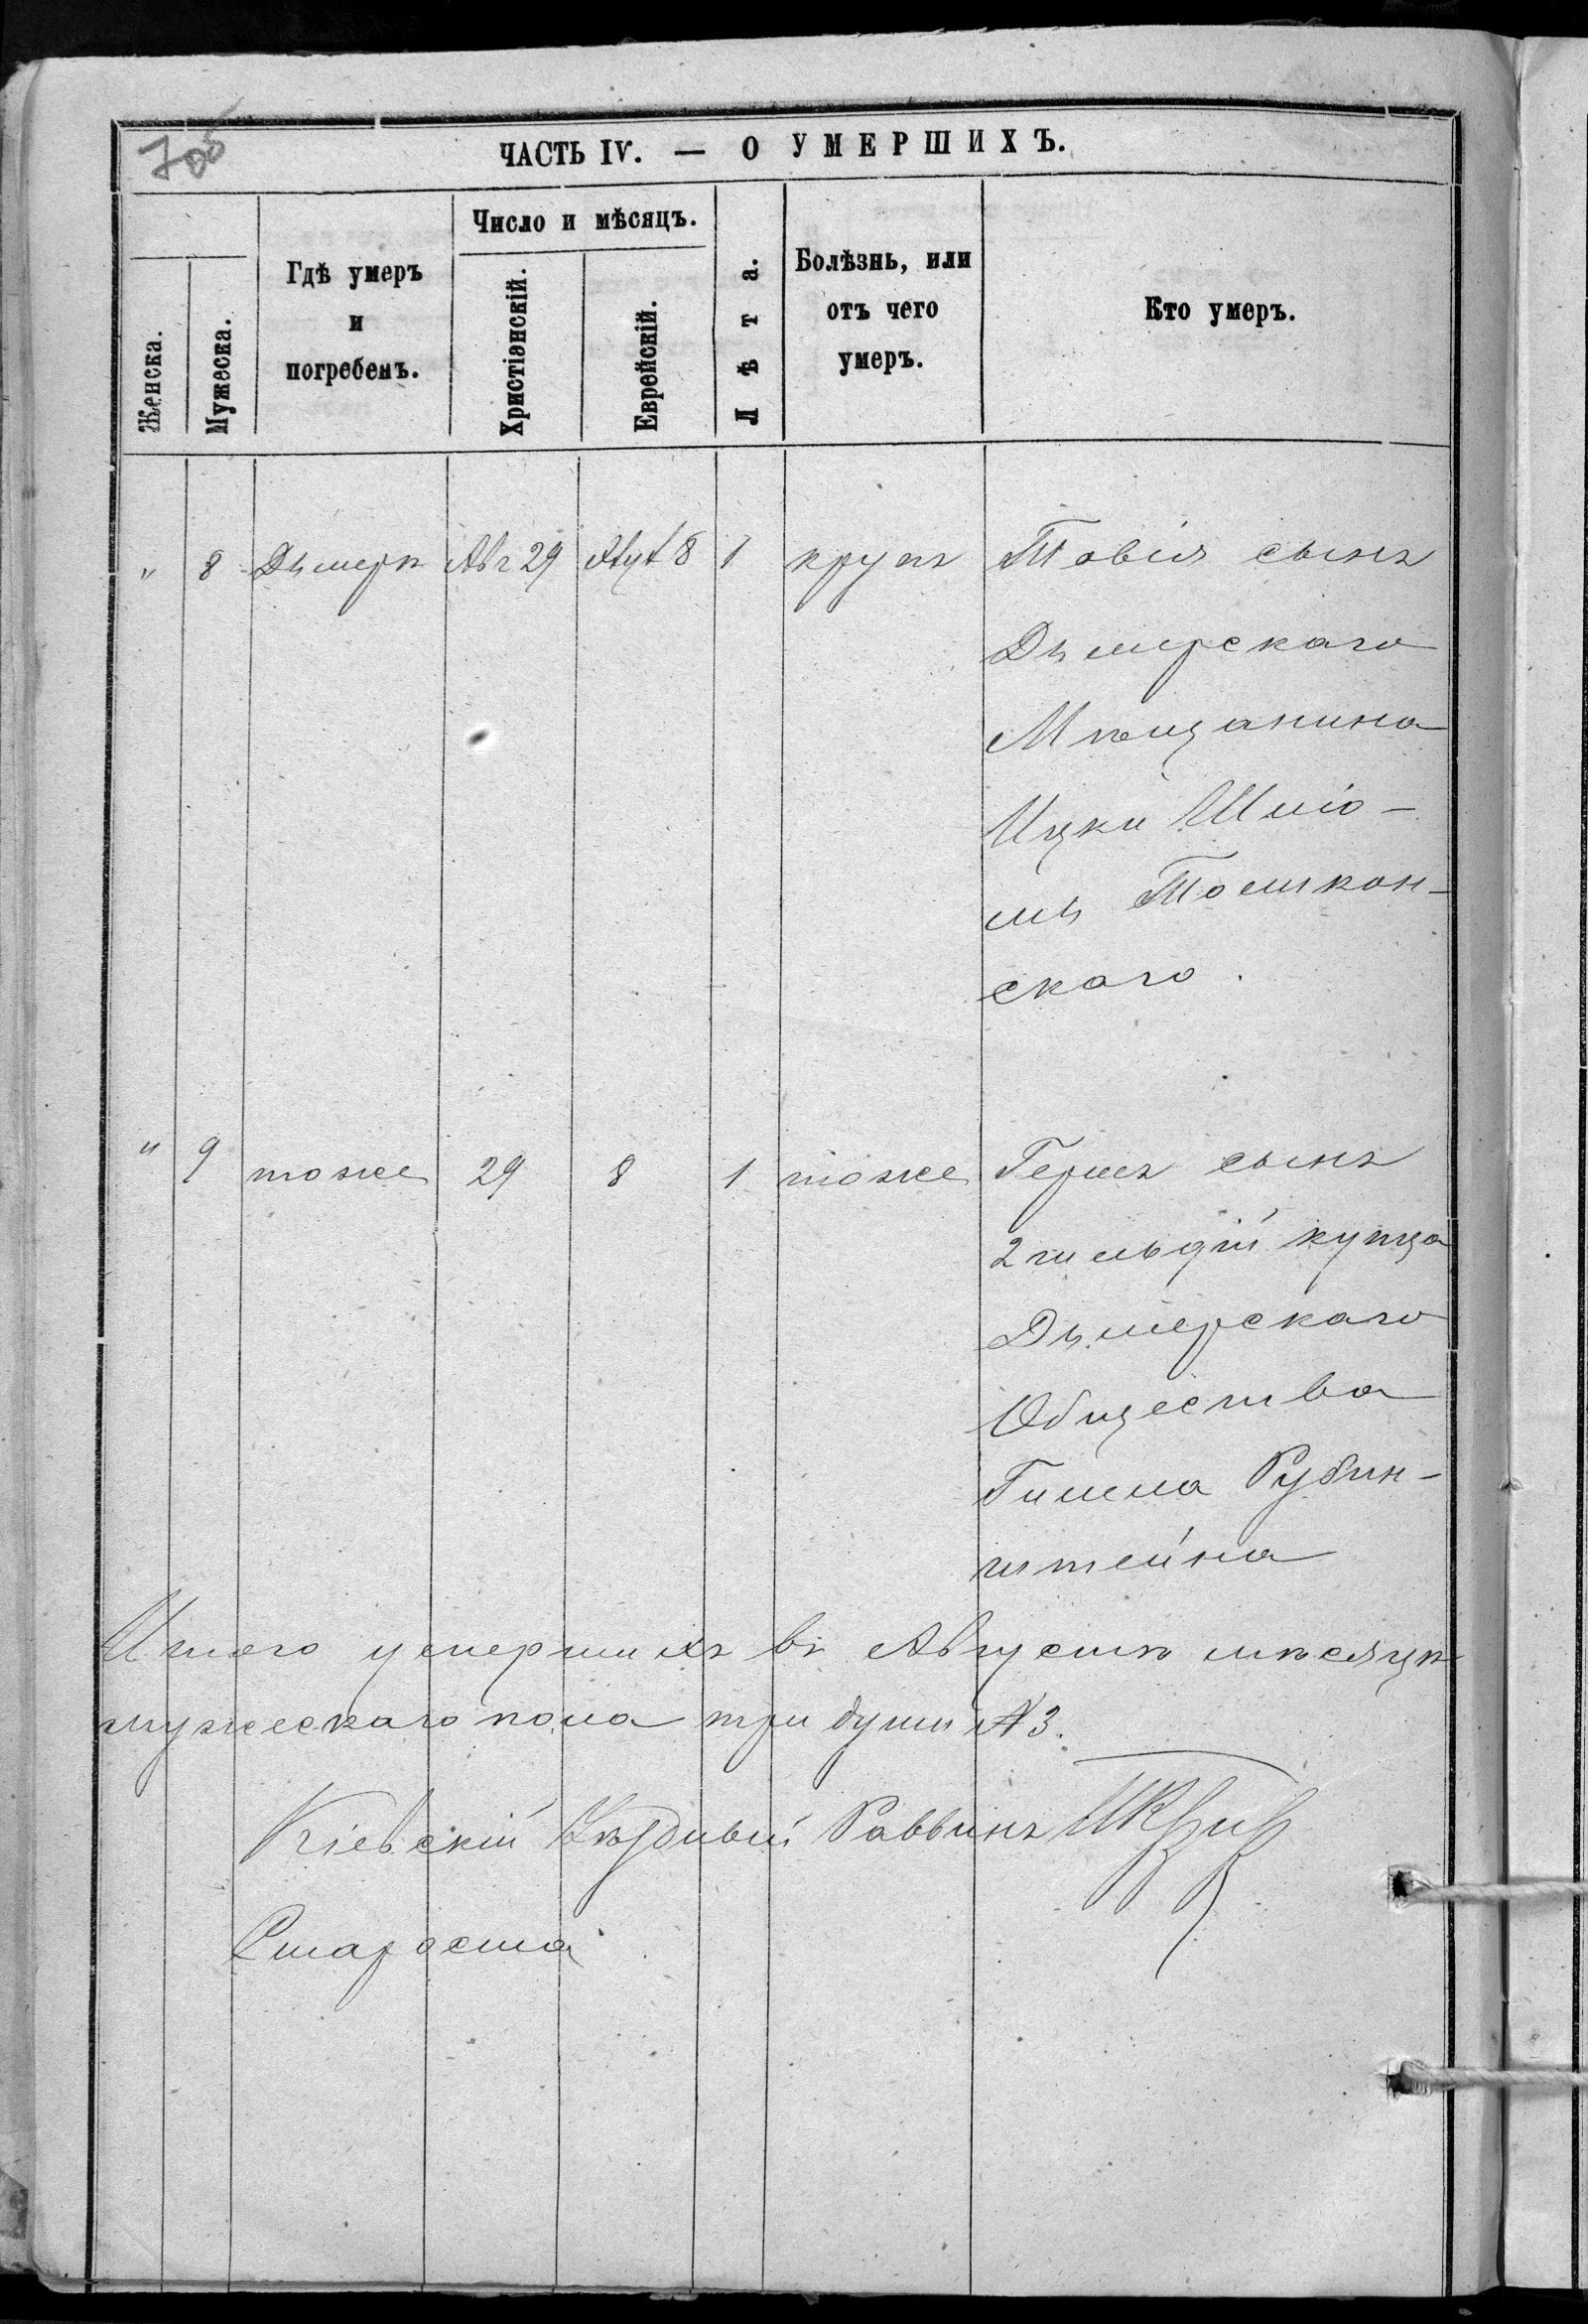 70об
ЧАСТЬ IV. — О УМЕРШИХЪ.
Женска.
Мужеска.
Гдѣ умеръ
и
погребенъ.
Число и мѣсяцъ.
Христіанскій.
Еврейскій.
Лѣта.
Болѣзнь, или
отъ чего
умеръ.
Кто умеръ.
" 8 Дымерѣ Авг 29 8 1 крупъ Товія сынъ
Дымерскаго
Мѣщанина
Ицки Шліо-
мы
скаго.
" 9 тоже 29 8 1 тоже Гершъ сынъ
2 гильдіи купца
Дымерскаго
Общества
Гилела Рубин-
штейна
Итого умершихъ въ Августѣ мѣсяцѣ
мужескаго пола три души № 3.
Кіевскій Уѣздный Раввинъ
Староста